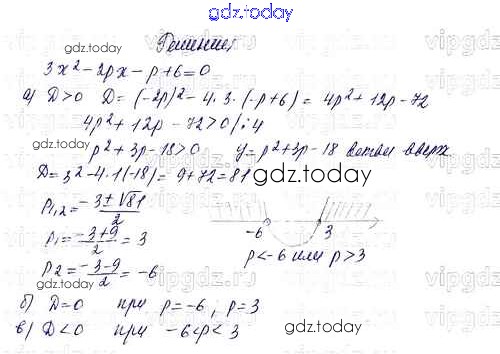 gdz.today
Решение:
gdz.today
3x² - 2px - p + 6 = 0
а) D > 0 D = (-2p)² - 4·3·(-p+6) = 4p² + 12p - 72
4p² + 12p - 72 > 0 /:4
p² + 3p - 18 > 0 y = p² + 3p - 18 ветви вверх
D = 3² - 4·1·(-18) = 9 + 72 = 81
gdz.today
p₁,₂ = (-3 ± √81)/2
p₁ = (-3+9)/2 = 3
-6 3
p < -6 или p > 3
p₂ = (-3-9)/2 = -6
б) D = 0 при p = -6; p = 3
в) D < 0 при -6 < p < 3
gdz.today
gdz.today
vipgdz
vipgdz.ru